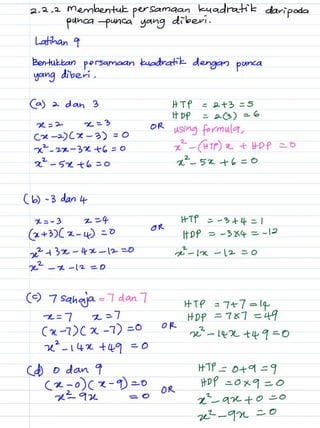 2.2.2 Membentuk persamaan kuadratik daripada
punca-punca yang diberi.
Latihan 9
Bentukkan persamaan kuadratik dengan punca
yang diberi.
(a) 2 dan 3
x=2 x=3
(x-2)(x-3)=0
x²-2x-3x+6=0
x²-5x+6=0
OR
HTP = 2+3 = 5
HDP = 2(3) = 6
using formula,
x²-(HTP)x + HDP = 0
x²-5x+6=0
(b) -3 dan 4
x=-3 x=4
(x+3)(x-4)=0
x²+3x-4x-12=0
x²-x-12=0
OR
HTP = -3+4=1
HDP = -3x4=-12
x²-1x-12=0
(c) 7 sahaja = 7 dan 7
x=7 x=7
(x-7)(x-7)=0
x²-14x+49=0
OR
HTP = 7+7=14
HDP = 7x7=49
x²-14x+49=0
(d) 0 dan 9
(x-0)(x-9)=0
x²-9x =0
OR
HTP=0+9=9
HDP=0x9=0
x²-9x+0=0
x²-9x=0